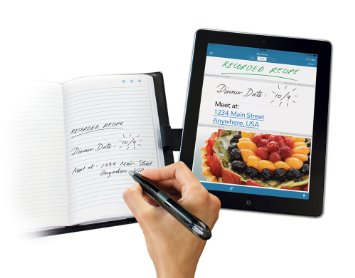 RECORDED RECIPE
Dinner Date: 10/9
Meet at: 1234 Main Street
Anywhere, USA
RECORDED RECIPE
Dinner Date: 10/9
Meet at:
1234 Main Street
Anywhere, USA